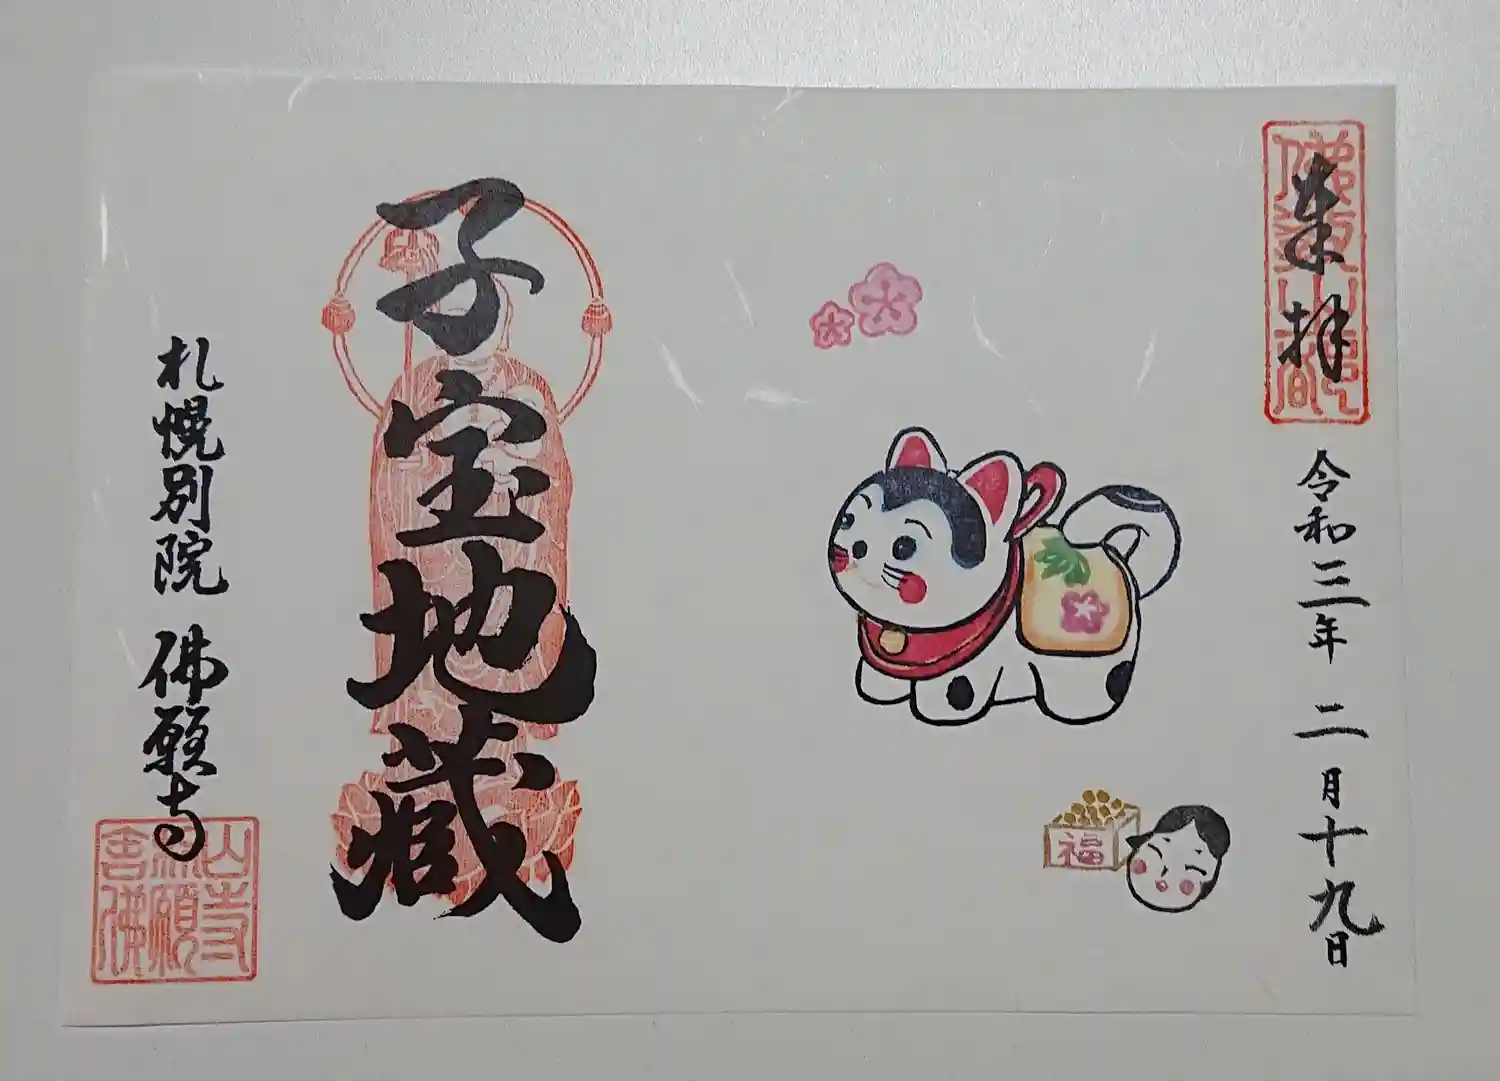 奉拝
令和三年 二月十九日
福
子宝地蔵
札幌別院 佛願寺